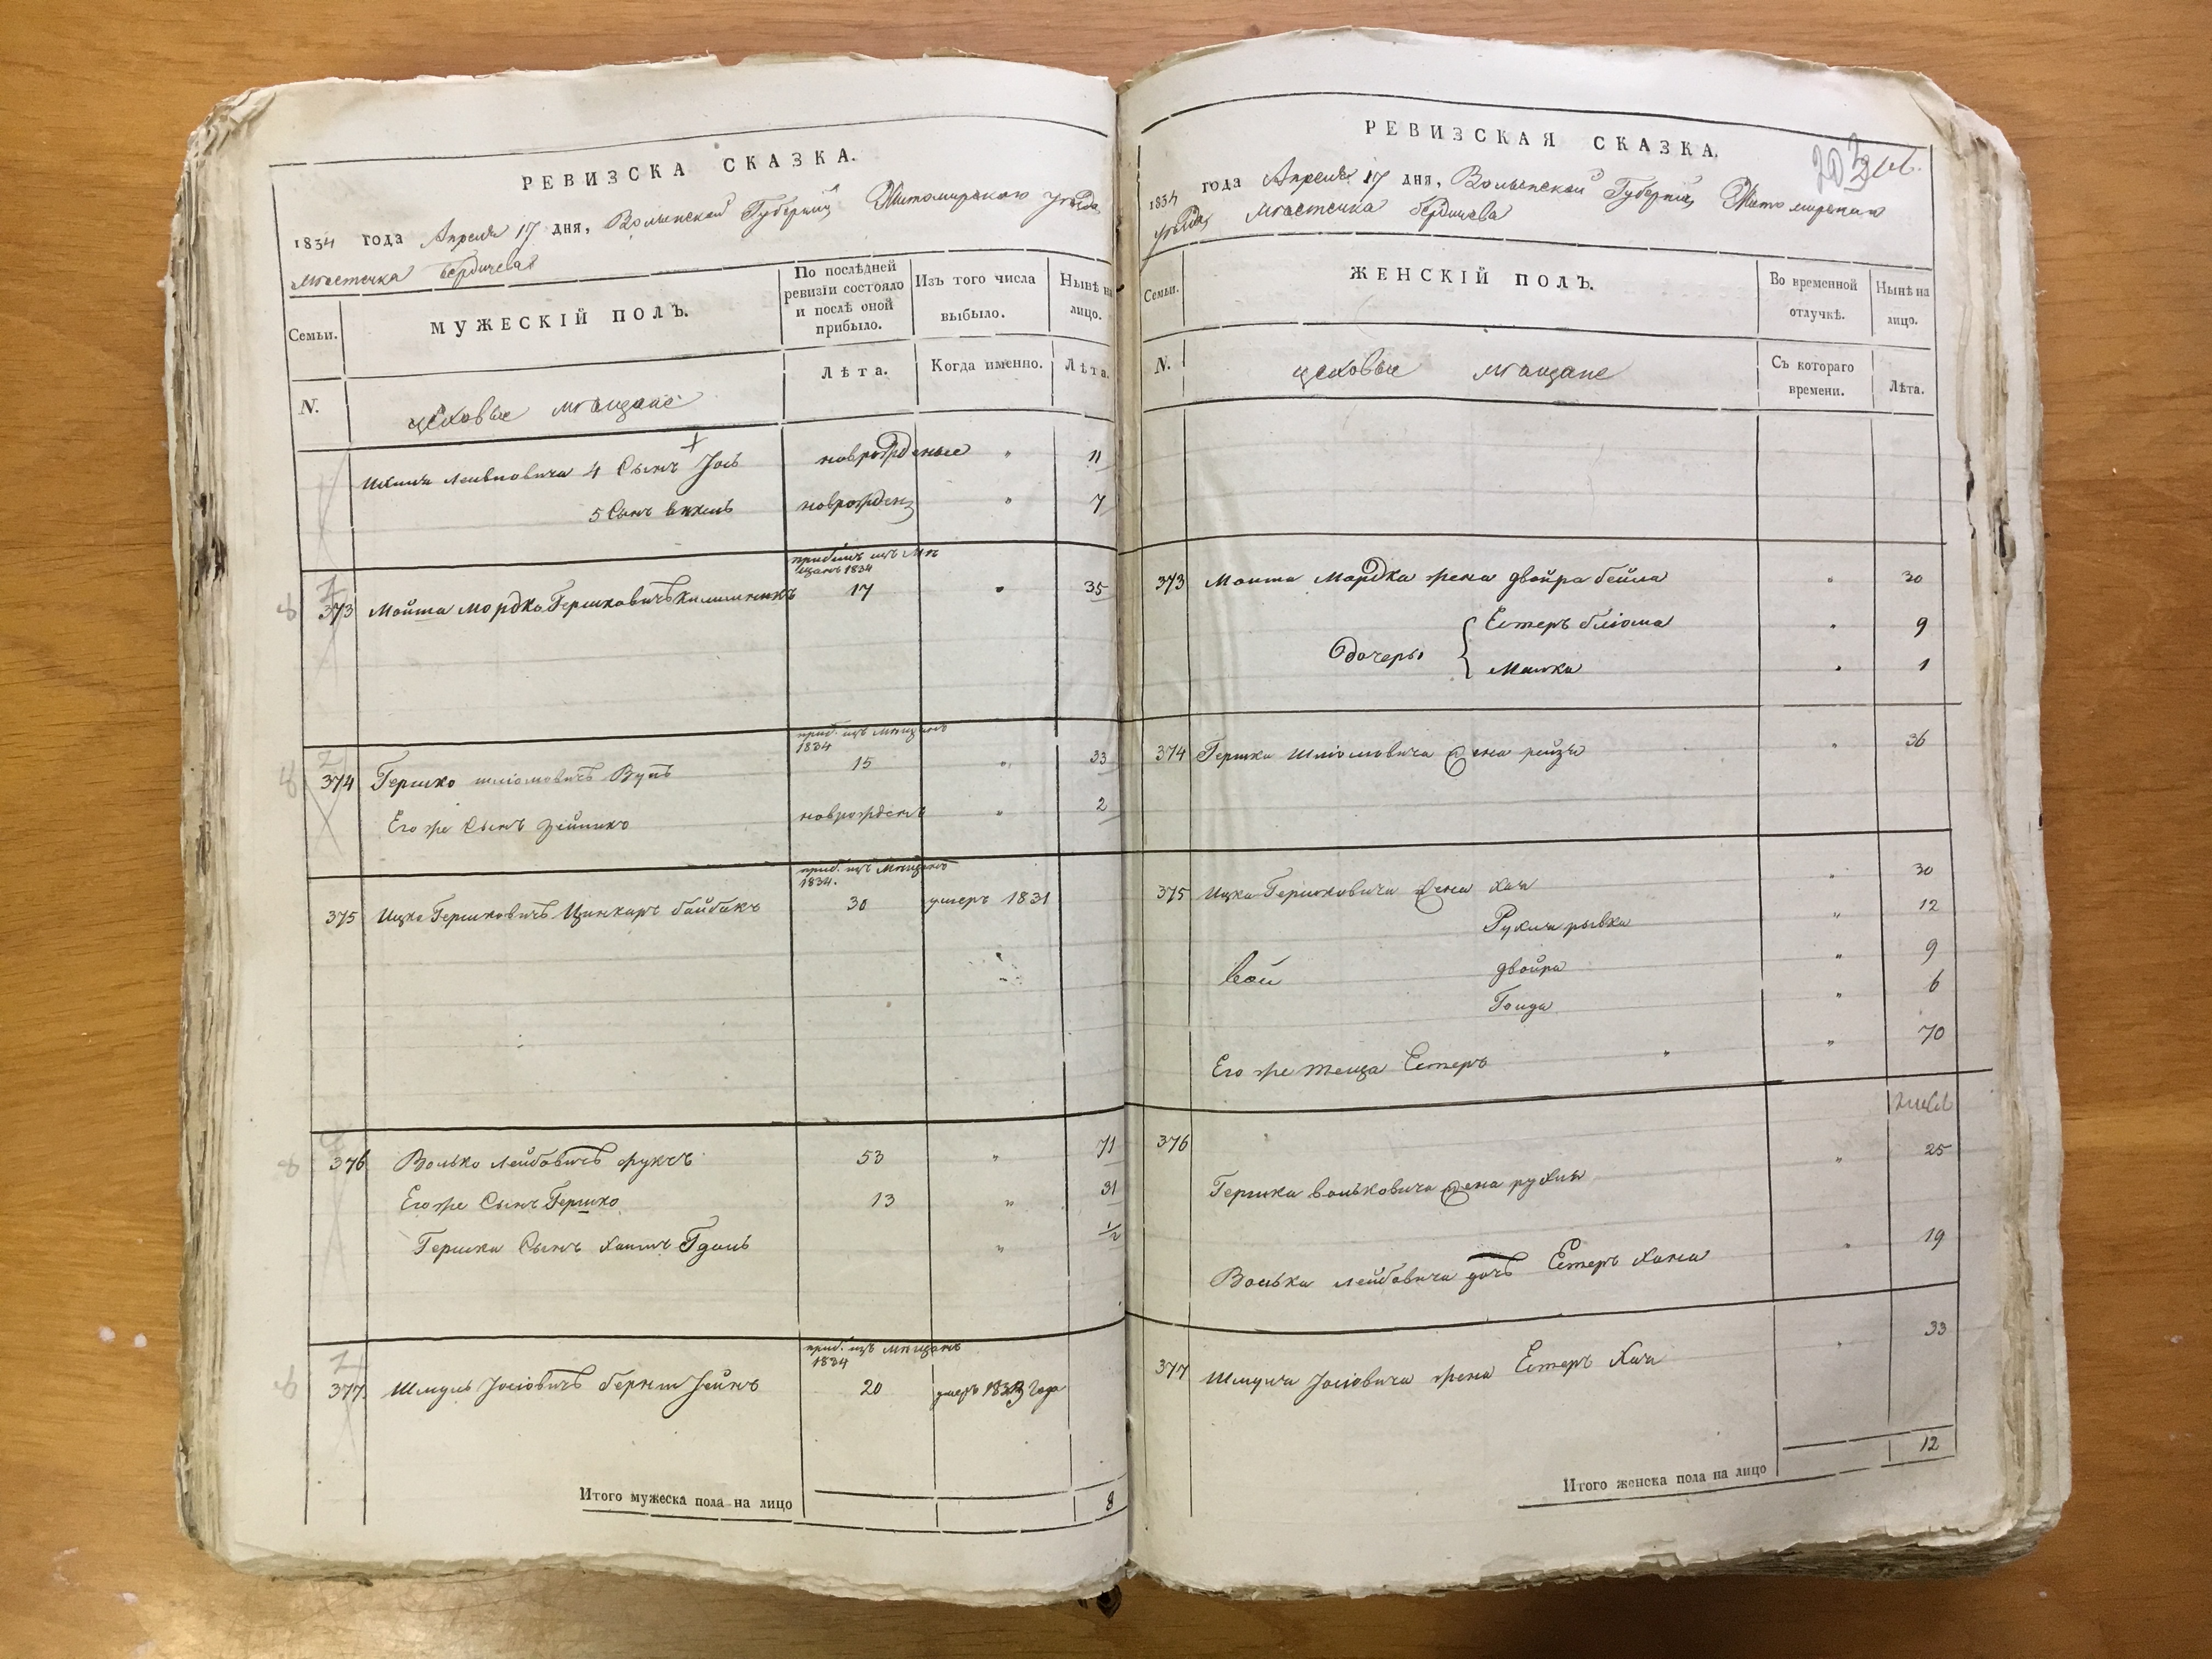 РЕВИЗСКА СКАЗКА.
1834 года Апреля 17 дня, Волынской Губерніи Житомирскаго уѣзда
мѣстечка бердичева
Семьи.
МУЖЕСКІЙ ПОЛЪ.
По послѣдней ревизіи состояло и послѣ оной прибыло.
Изъ того числа выбыло.
Нынѣ на лицо.
N.
цеховые мѣщане
Лѣта.
Когда именно.
Лѣта.
4 Сынъ Іось новорожденые " 11
5 Сынъ новорожден " 7
прибылъ изъ Мѣ
щанъ 1834
373 Мошка Мордко Гершковичъ 17 " 35
приб. изъ Мѣщанъ
1834
374 Гершко шліомовичъ 15 " 33
Его же Сынъ новорожденъ " 2
приб. изъ Мѣщанъ
1834.
375 Ицко Гершковичъ байбакъ 30 умеръ 1831
376 Волько лейбовичъ фуксъ 53 " 71
Его же Сынъ Гершко 13 " 31
Гершка Сынъ хаимъ Гдаль " 1/2
приб. изъ Мѣщанъ
1834
377 Шмуль Іосіовичъ 20 умеръ 1833 года
Итого мужеска пола на лицо 8
РЕВИЗСКАЯ СКАЗКА.
1834 года Апреля 17 дня, Волынской Губерніи Житомирскаго
уѣзда, мѣстечка бердичева
Семьи.
ЖЕНСКІЙ ПОЛЪ.
Во временной отлучкѣ.
Нынѣ на лицо.
N.
цеховые мѣщане
Съ котораго времени.
Лѣта.
373 Мордка жена двойра бейла " 30
Естеръ блюма " 9
дочеры
Малка " 1
374 Гершка Шліомовича жена рейзя " 36
375 Ицка Гершковича жена хая " 30
Рухля рывка " 12
двойра " 9
Голда " 6
Его же теща Естеръ " 70
376
Гершка вольковича жена рухля " 25
Волька лейбовича дочъ Естеръ хана " 19
377 Шмуля Іосіовича жена Естеръ Хая " 33
Итого женска пола на лицо 12